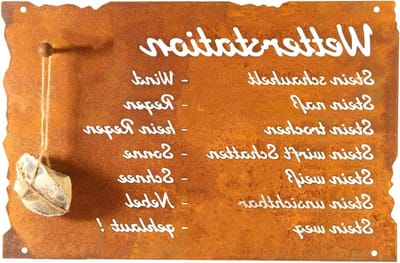 Wetterstation
Stein schaukelt - Wind
Stein naß - Regen
Stein trocken - kein Regen
Stein wirft Schatten - Sonne
Stein weiß - Schnee
Stein unsichtbar - Nebel
Stein weg - geklaut !